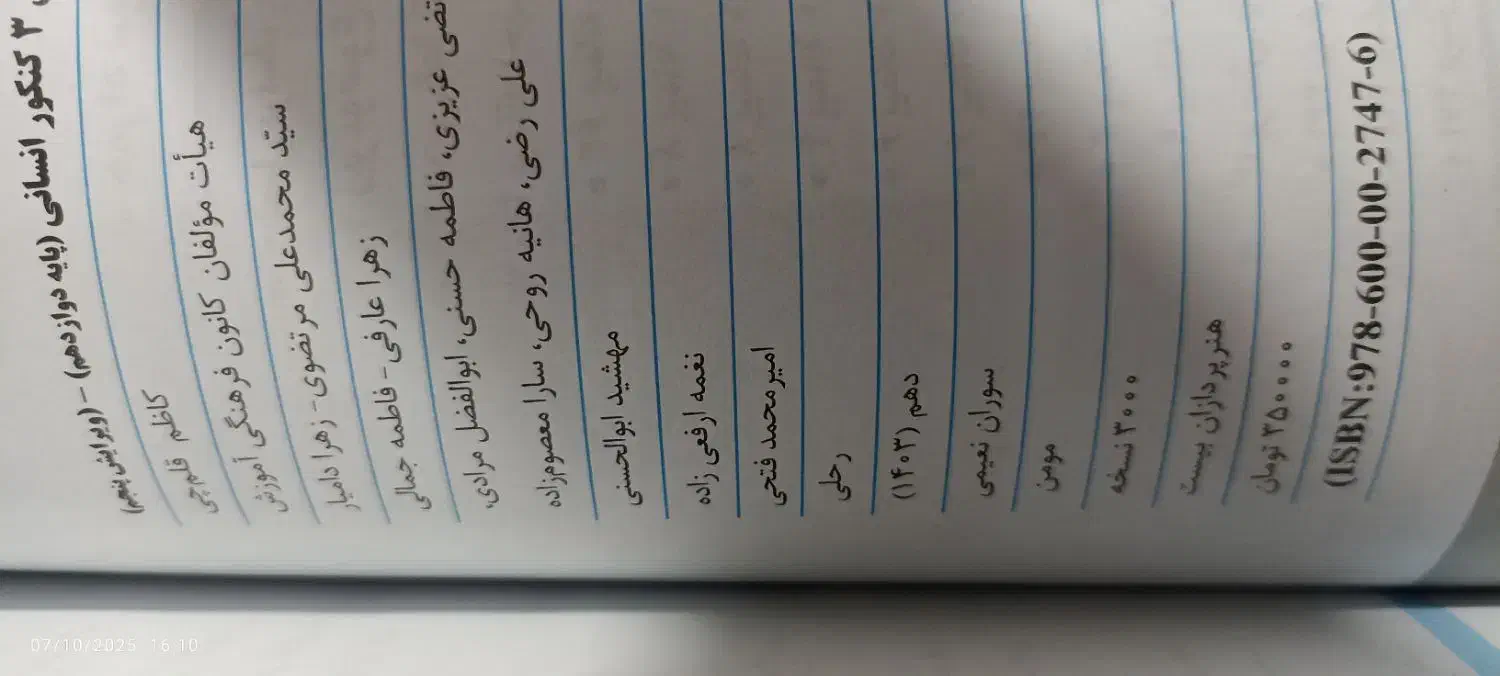 ۳ کنکور انسانی (پایه دوازدهم) – (ویرایش پنجم)
کاظم قلم‌چی
هیأت مؤلفان کانون فرهنگی آموزش
سیّد محمدعلی مرتضوی - زهرا دامیار
زهرا عارفی - فاطمه جمالی
عزیزی، فاطمه حسنی، ابوالفضل مرادی،
علی رضی، هانیه روحی، سارا معصوم‌زاده
مهشید ابوالحسنی
نغمه ارفعی زاده
امیر محمد فتحی
رحلی
دهم (۱۴۰۳)
سوران نعیمی
مومن
۳۰۰۰ نسخه
هنرپردازان بیست
۳۵۰۰۰۰ تومان
(ISBN:978-600-00-2747-6)
07/10/2025 16:10